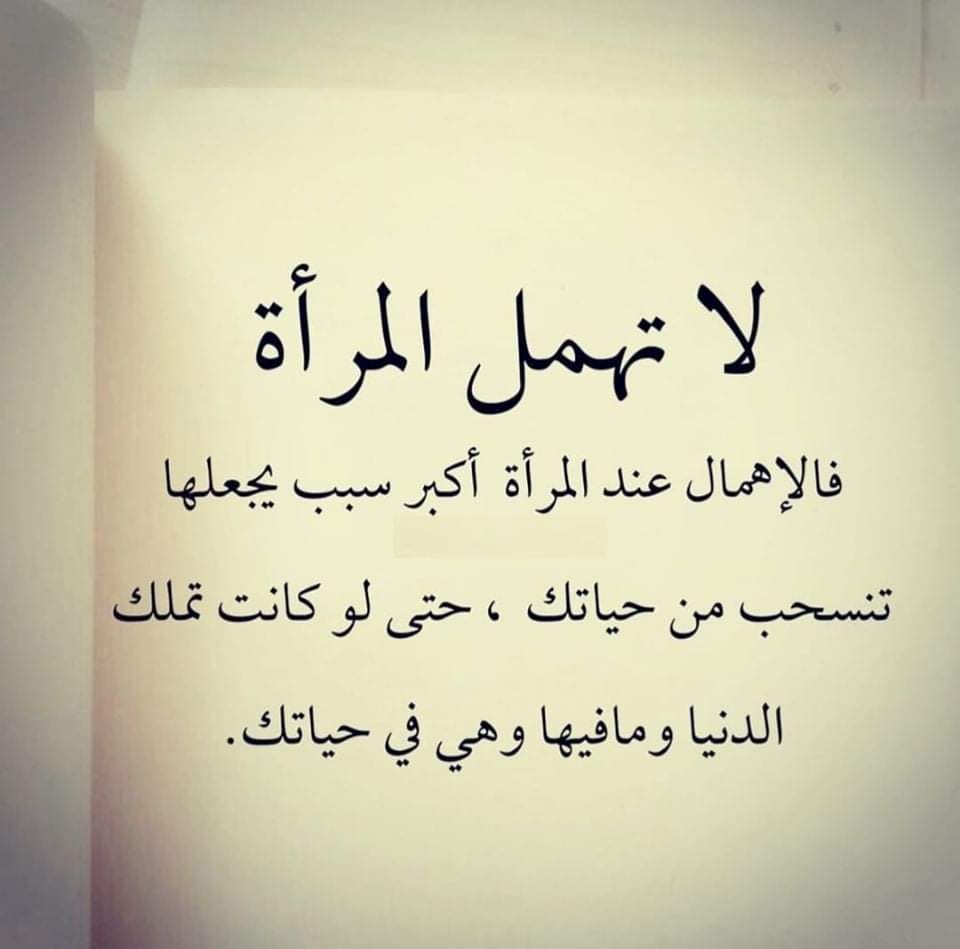 لا تهمل المرأة
فالإهمال عند المرأة أكبر سبب يجعلها
تنسحب من حياتك ، حتى لو كانت تملك
الدنيا ومافيها وهي في حياتك.